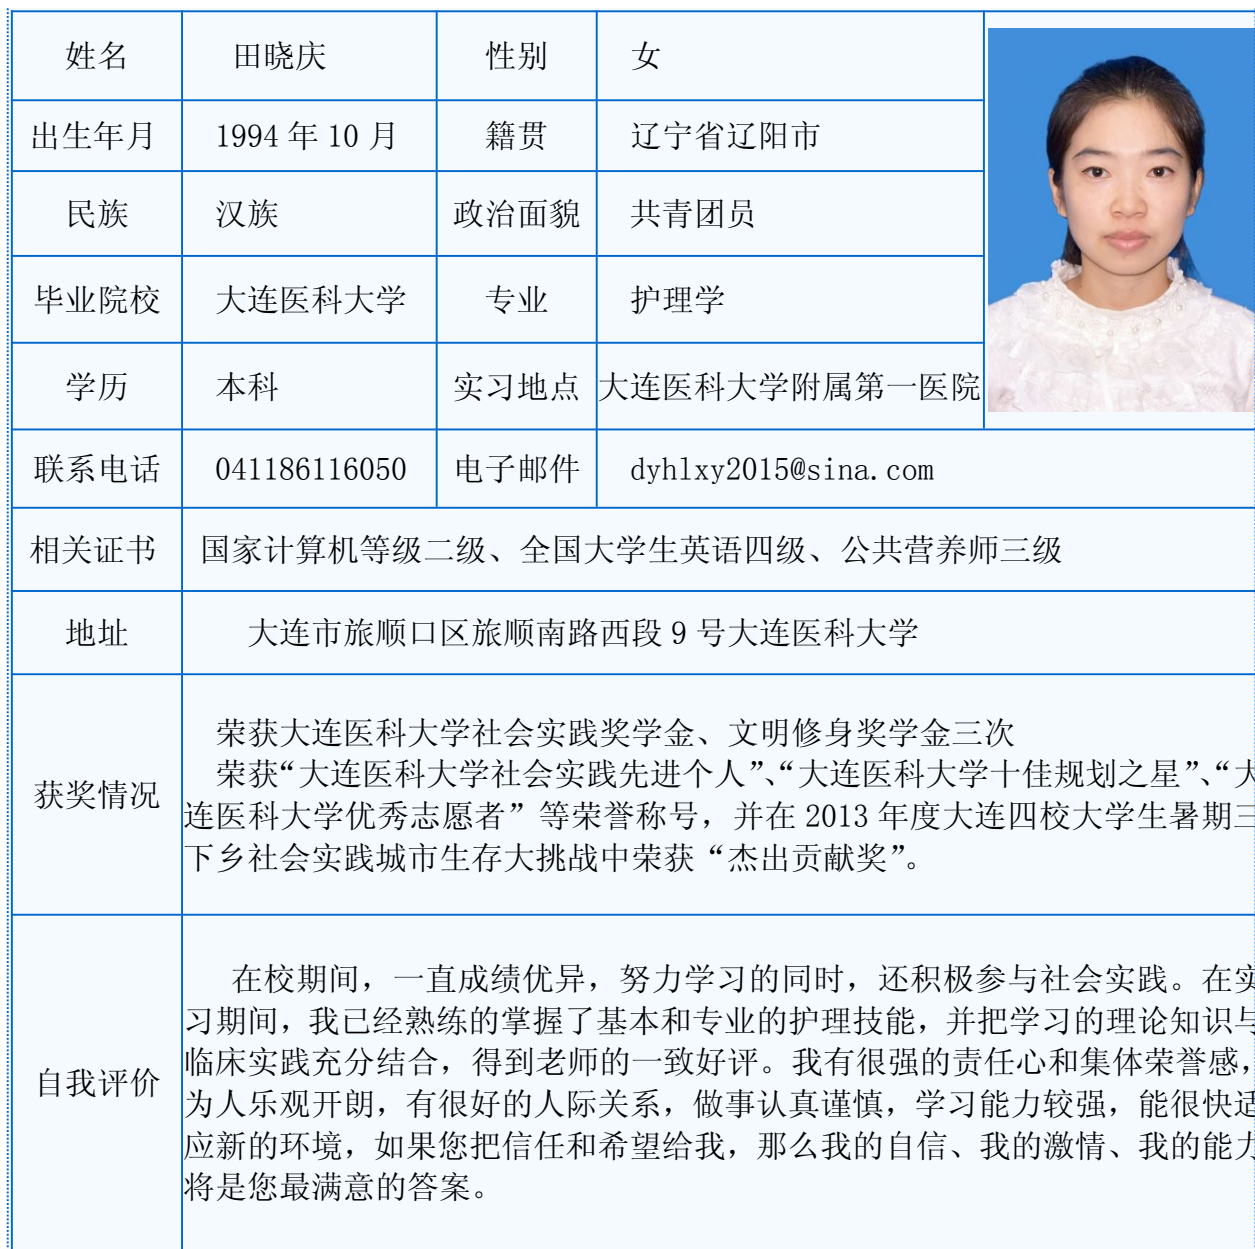 姓名 田晓庆 性别 女
出生年月 1994年10月 籍贯 辽宁省辽阳市
民族 汉族 政治面貌 共青团员
毕业院校 大连医科大学 专业 护理学
学历 本科 实习地点 大连医科大学附属第一医院
联系电话 041186116050 电子邮件 dyhlxy2015@sina.com
相关证书 国家计算机等级二级、全国大学生英语四级、公共营养师三级
地址 大连市旅顺口区旅顺南路西段9号大连医科大学
获奖情况
荣获大连医科大学社会实践奖学金、文明修身奖学金三次
荣获“大连医科大学社会实践先进个人”、“大连医科大学十佳规划之星”、“大
连医科大学优秀志愿者”等荣誉称号，并在2013年度大连四校大学生暑期三
下乡社会实践城市生存大挑战中荣获“杰出贡献奖”。
自我评价
在校期间，一直成绩优异，努力学习的同时，还积极参与社会实践。在实
习期间，我已经熟练的掌握了基本和专业的护理技能，并把学习的理论知识与
临床实践充分结合，得到老师的一致好评。我有很强的责任心和集体荣誉感，
为人乐观开朗，有很好的人际关系，做事认真谨慎，学习能力较强，能很快适
应新的环境，如果您把信任和希望给我，那么我的自信、我的激情、我的能力
将是您最满意的答案。